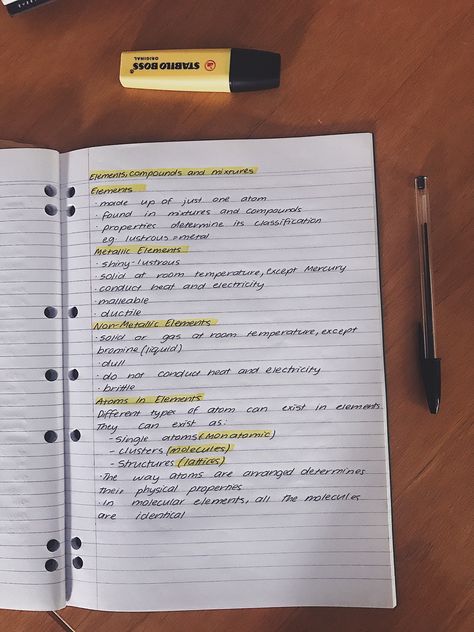 STABILO BOSS
ORIGINAL
Elements, compounds and mixtures
Elements
· made up of just one atom
· found in mixtures and compounds
· properties determine its classification
eg lustrous = metal
Metallic Elements
· shiny-lustrous
· solid at room temperature, except Mercury
· conduct heat and electricity
· malleable
· ductile
Non-Metallic Elements
· solid or gas at room temperature, except
bromine (liquid)
· dull
· do not conduct heat and electricity
· brittle
Atoms In Elements
Different types of atom can exist in elements.
They can exist as:
- Single atoms (monatomic)
- clusters (molecules)
- Structures (lattices)
· The way atoms are arranged determines
their physical properties
· In molecular elements, all the molecules
are identical